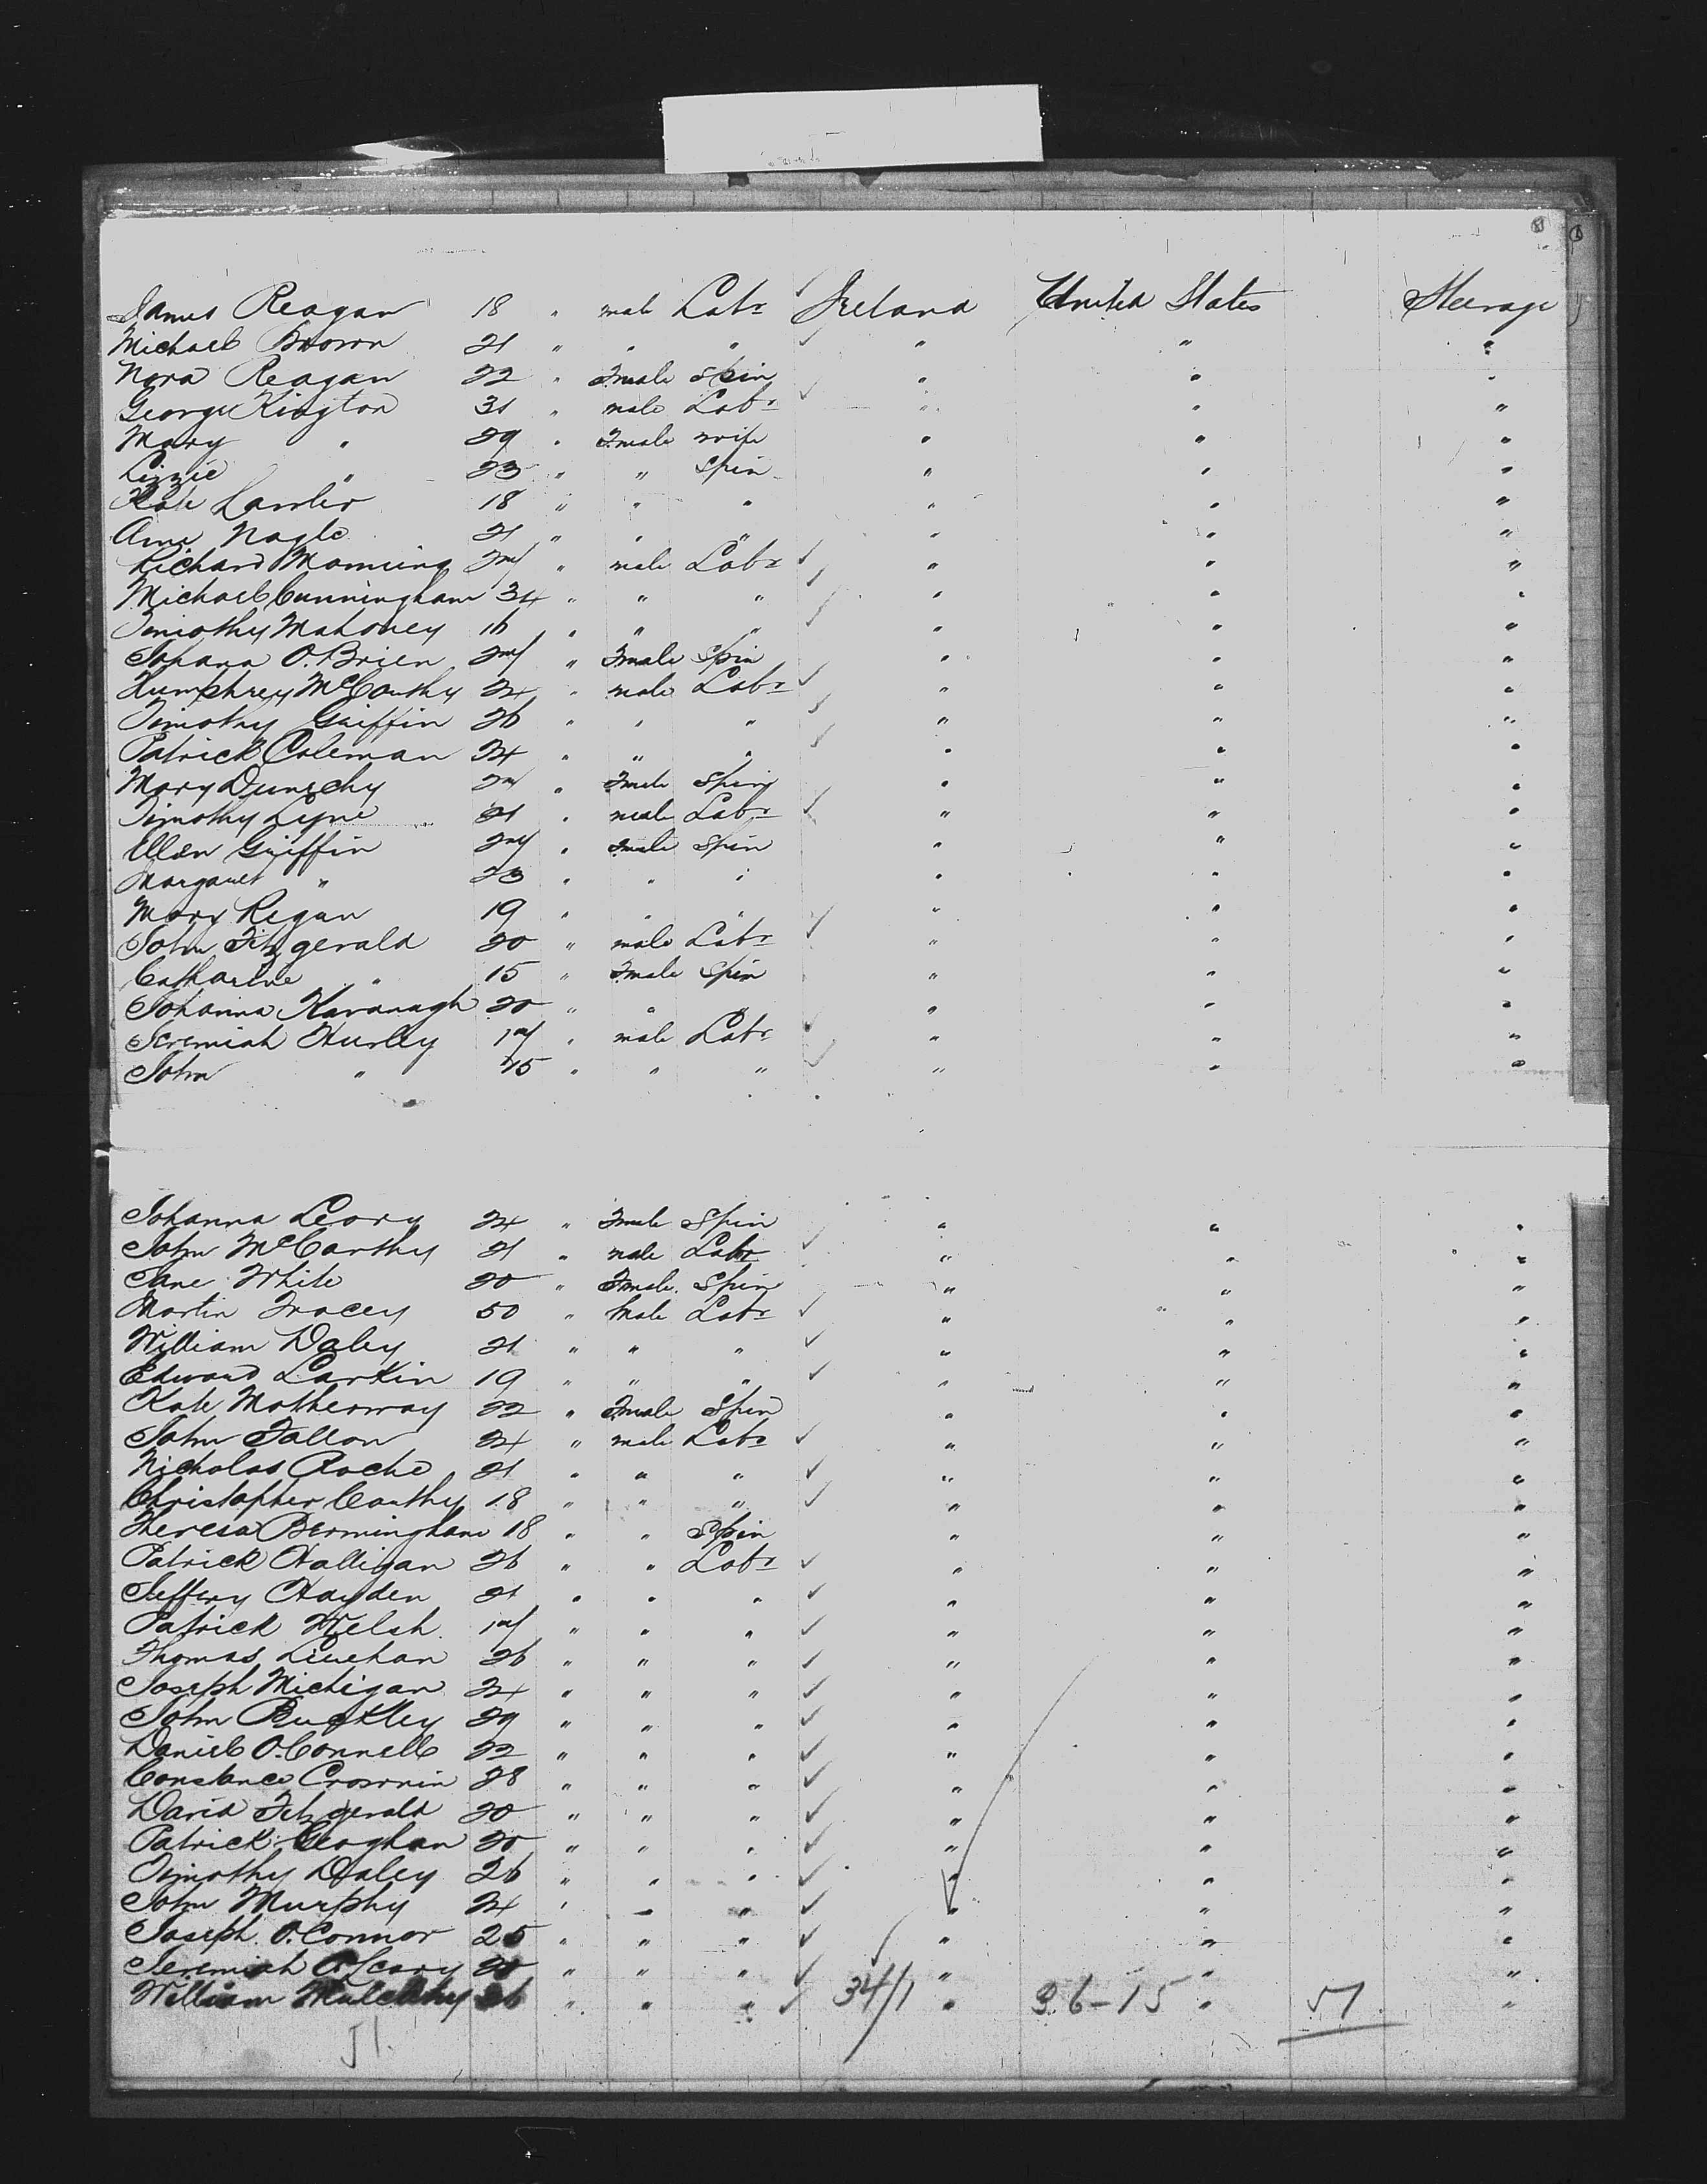 James Reagan 18 " male Labr Ireland United States Steerage
Michael Brown 21 " " " " " "
Nora Reagan 22 " Fmale Spin " " "
George Kington 31 " male Labr " " "
Mary " 29 " Fmale wife " " "
Lizzie " 23 " " Spin " " "
Kate Lawler 18 " " " " " "
Ann Nagle 21 " " " " " "
Richard Manning 27 " male Labr " " "
Michael Cunningham 34 " " " " " "
Timothy Mahoney 16 " " " " " "
Johana O.Brien 27 " Fmale Spin " " "
Humphrey McCarthy 24 " male Labr " " "
Timothy Griffin 26 " " " " " "
Patrick Coleman 24 " " " " " "
Mary 27 " Fmale Spin " " "
Timothy Lyne 21 " male Labr " " "
Ellen Griffin 27 " Fmale Spin " " "
Margaret " 23 " " " " " "
Mary Regan 19 " " " " " "
John Fitzgerald 20 " male Labr " " "
Catharine " 15 " Fmale Spin " " "
Johanna Kavanagh 20 " " " " " "
Jeremiah Hurley 17 " male Labr " " "
John " 15 " " " " " "
Johanna Leary 24 " Fmale Spin " " "
John McCarthy 21 " male Labr " " "
Jane White 20 " Fmale Spin " " "
Martin Tracey 50 " Male Labr " " "
William Daley 21 " " " " " "
Edward Larkin 19 " " " " " "
Kate Motherway 22 " Fmale Spin " " "
John Fallon 24 " male Labr " " "
Nicholas Roche 21 " " " " " "
Christopher Carthy 18 " " " " " "
Theresa Bermingham 18 " " Spin " " "
Patrick Halligan 26 " " Labr " " "
Jeffery Hayden 21 " " " " " "
Patrick Welsh 17 " " " " " "
Thomas Linehan 26 " " " " " "
Joseph Michigan 24 " " " " " "
John Buckley 29 " " " " " "
Daniel O.Connell 22 " " " " " "
Constance Crownin 28 " " " " " "
David Fitzgerald 20 " " " " " "
Patrick Geoghan 20 " " " " " "
Timothy Daley 26 " " " " " "
John Murphy 24 " " " " " "
Joseph O.Connor 25 " " " " " "
Jeremiah O.Leary 20 " " " " " "
William Mulcahy 26 " " " 34/1 " 36-15 " 51 "
51.